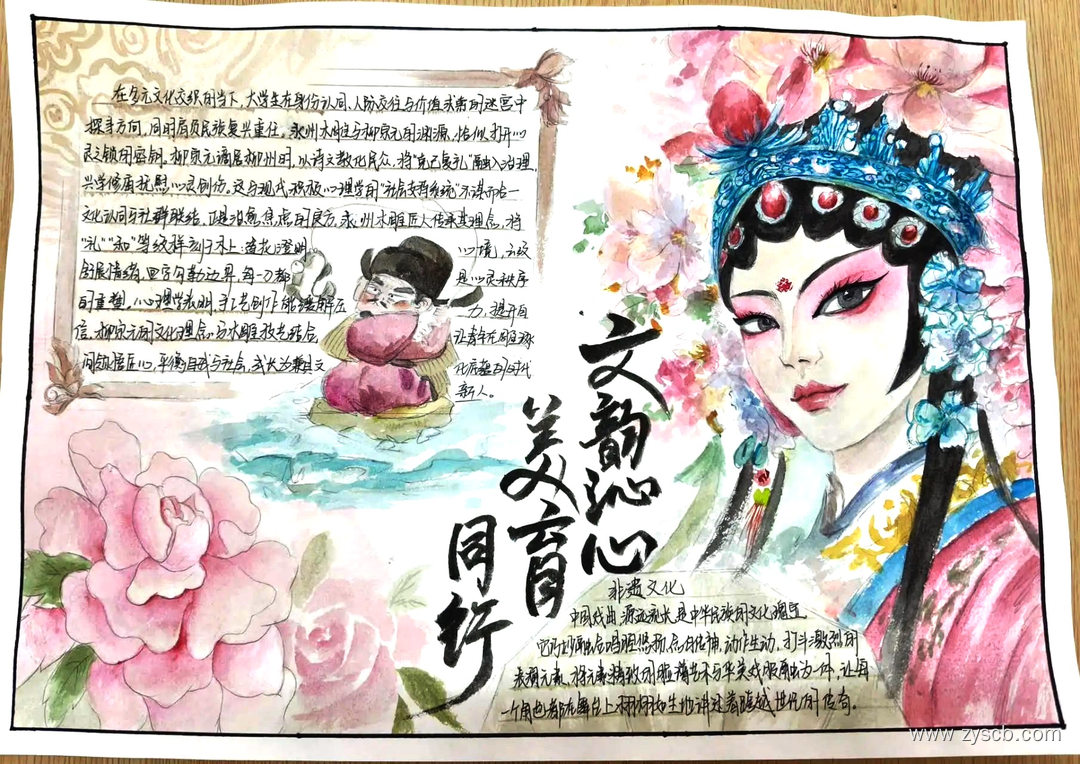 在多元文化交织的当下，大学生在身份认同、人际交往与价值求索的迷宫中
探寻方向，同时肩负民族复兴重任。永州木雕与柳宗元的渊源，恰似打开心
灵之锁的密钥。柳宗元谪居柳州时，以诗文教化民众，将“克己复礼”融入治理，
兴学修庙抚慰心灵创伤，这与现代积极心理学的“社会支持系统”不谋而合——
文化认同与社群联结，正是治愈焦虑的良方。永州木雕匠人传承其理念，将
“礼”“和”等纹样刻于木上，莲花澄明心境，云纹
舒展情绪，回字勾勒边界，每一刀都是心灵秩序
的重塑。心理学表明，手工艺创作能缓解压力，提升自
信。柳宗元的文化理念与木雕技艺结合，让青年在雕琢
间领悟匠心，平衡自我与社会，成长为兼具文化底蕴的时代
新人。
文韵沁心
美育
同行
非遗文化
中国戏曲源远流长是中华民族的文化瑰宝
它巧妙融合唱腔悠扬、念白传神、动作生动，打斗激烈的
表演元素，将元素精致的脸谱艺术与华美戏服融为一体，让每
一个角色都在舞台上栩栩如生地讲述着跨越世纪的传奇。
www.zyscb.com